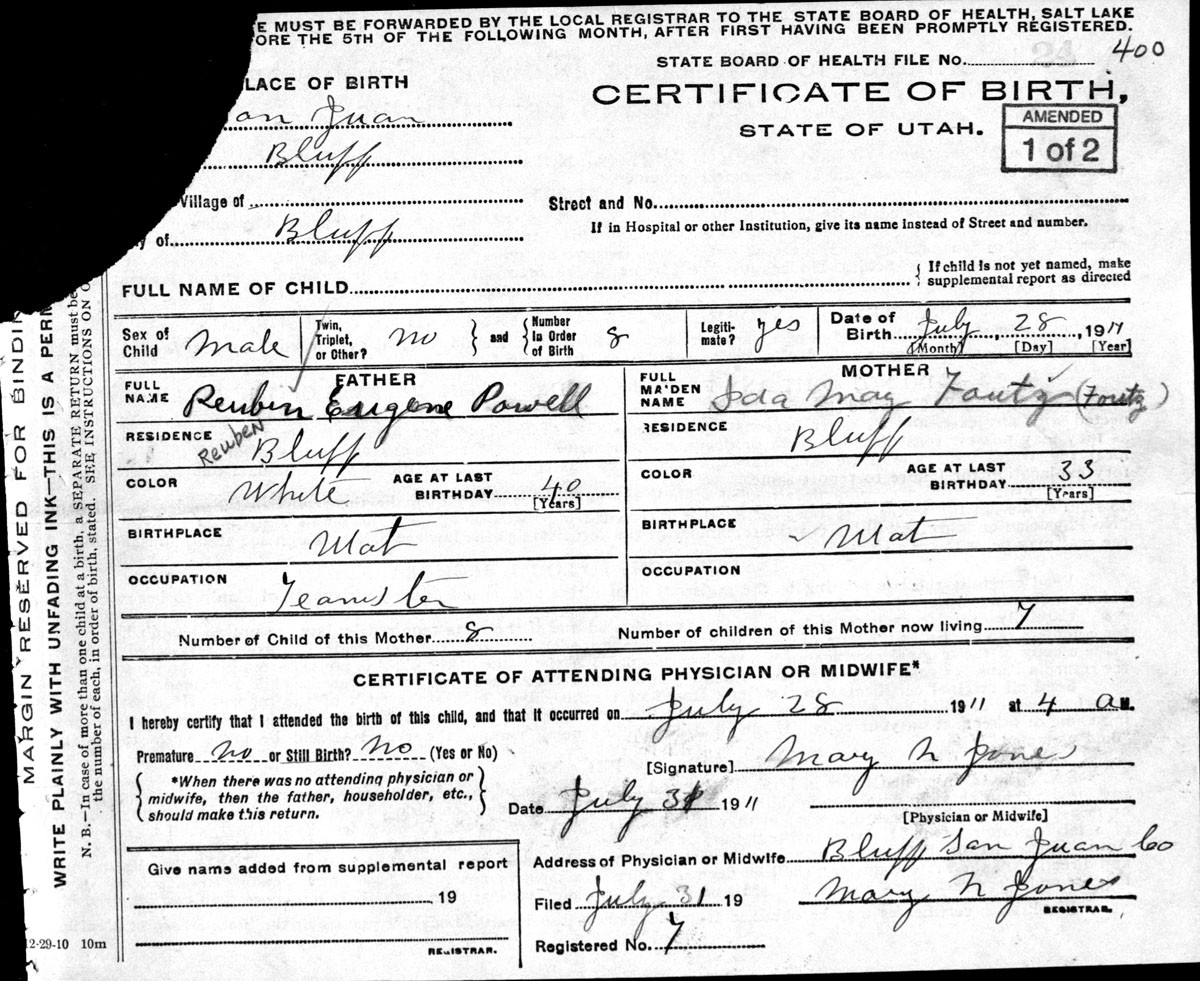 E MUST BE FORWARDED BY THE LOCAL REGISTRAR TO THE STATE BOARD OF HEALTH, SALT LAKE
ORE THE 5TH OF THE FOLLOWING MONTH, AFTER FIRST HAVING BEEN PROMPTLY REGISTERED.
STATE BOARD OF HEALTH FILE NO. 400
LACE OF BIRTH
CERTIFICATE OF BIRTH,
STATE OF UTAH.
AMENDED
1 of 2
an Juan
Bluff
Village of
Street and No.
y of Bluff
If in Hospital or other Institution, give its name instead of Street and number.
FULL NAME OF CHILD
{ If child is not yet named, make
supplemental report as directed
Sex of Child Male
Twin, Triplet, or Other? no } and { Number In Order of Birth 8
Legiti-mate? yes
Date of Birth July 28, 1911
[Month] [Day] [Year]
FATHER
FULL NAME Reubin Eugene Powell
Reuben
RESIDENCE Bluff
COLOR White
AGE AT LAST BIRTHDAY 40
[Years]
BIRTHPLACE Utah
OCCUPATION Teamster
MOTHER
FULL MAIDEN NAME Ida May Foutz (Foutz)
RESIDENCE Bluff
COLOR
AGE AT LAST BIRTHDAY 33
[Years]
BIRTHPLACE Utah
OCCUPATION
Number of Child of this Mother 8
Number of children of this Mother now living 7
CERTIFICATE OF ATTENDING PHYSICIAN OR MIDWIFE*
I hereby certify that I attended the birth of this child, and that it occurred on July 28 1911 at 4 a M.
Premature no or Still Birth? No (Yes or No)
{ *When there was no attending physician or
midwife, then the father, householder, etc.,
should make this return. }
[Signature] Mary N Jones
Date July 31 1911
[Physician or Midwife]
Give name added from supplemental report
19
REGISTRAR.
Address of Physician or Midwife Bluff San Juan Co
Filed July 31 19
Mary N Jones
REGISTRAR.
Registered No. 7
12-29-10 10m
MARGIN RESERVED FOR BINDIN
WRITE PLAINLY WITH UNFADING INK—THIS IS A PERM
N. B.—In case of more than one child at a birth, a SEPARATE RETURN must be
the number of each, in order of birth, stated. SEE INSTRUCTIONS ON